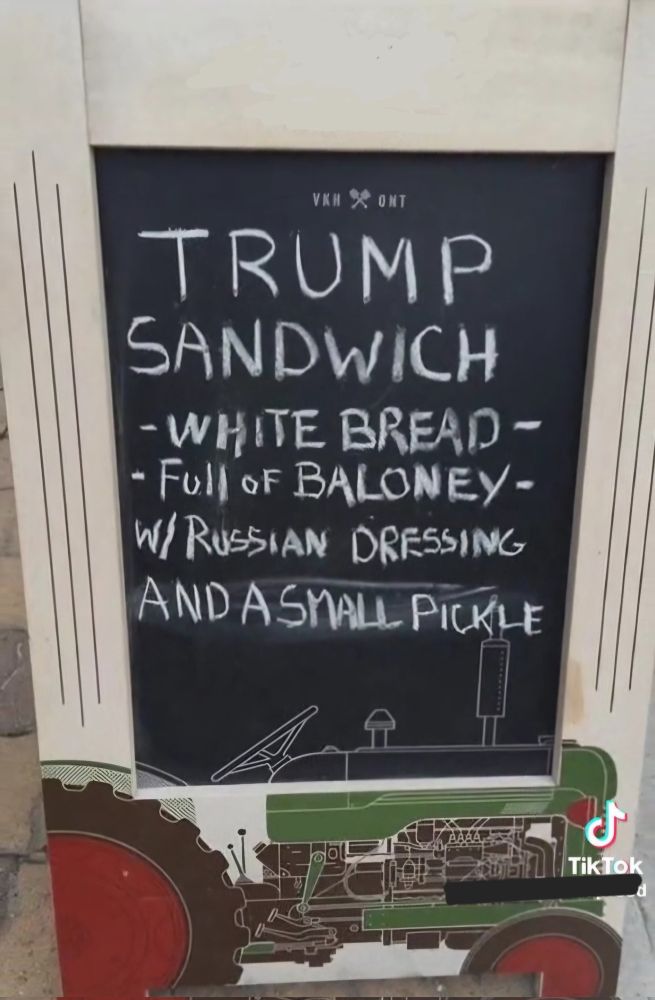 VKH ONT
TRUMP
SANDWICH
-WHITE BREAD-
-Full oF BALONEY-
W/ RUSSIAN DRESSING
AND A SMALL PICKLE
TikTok